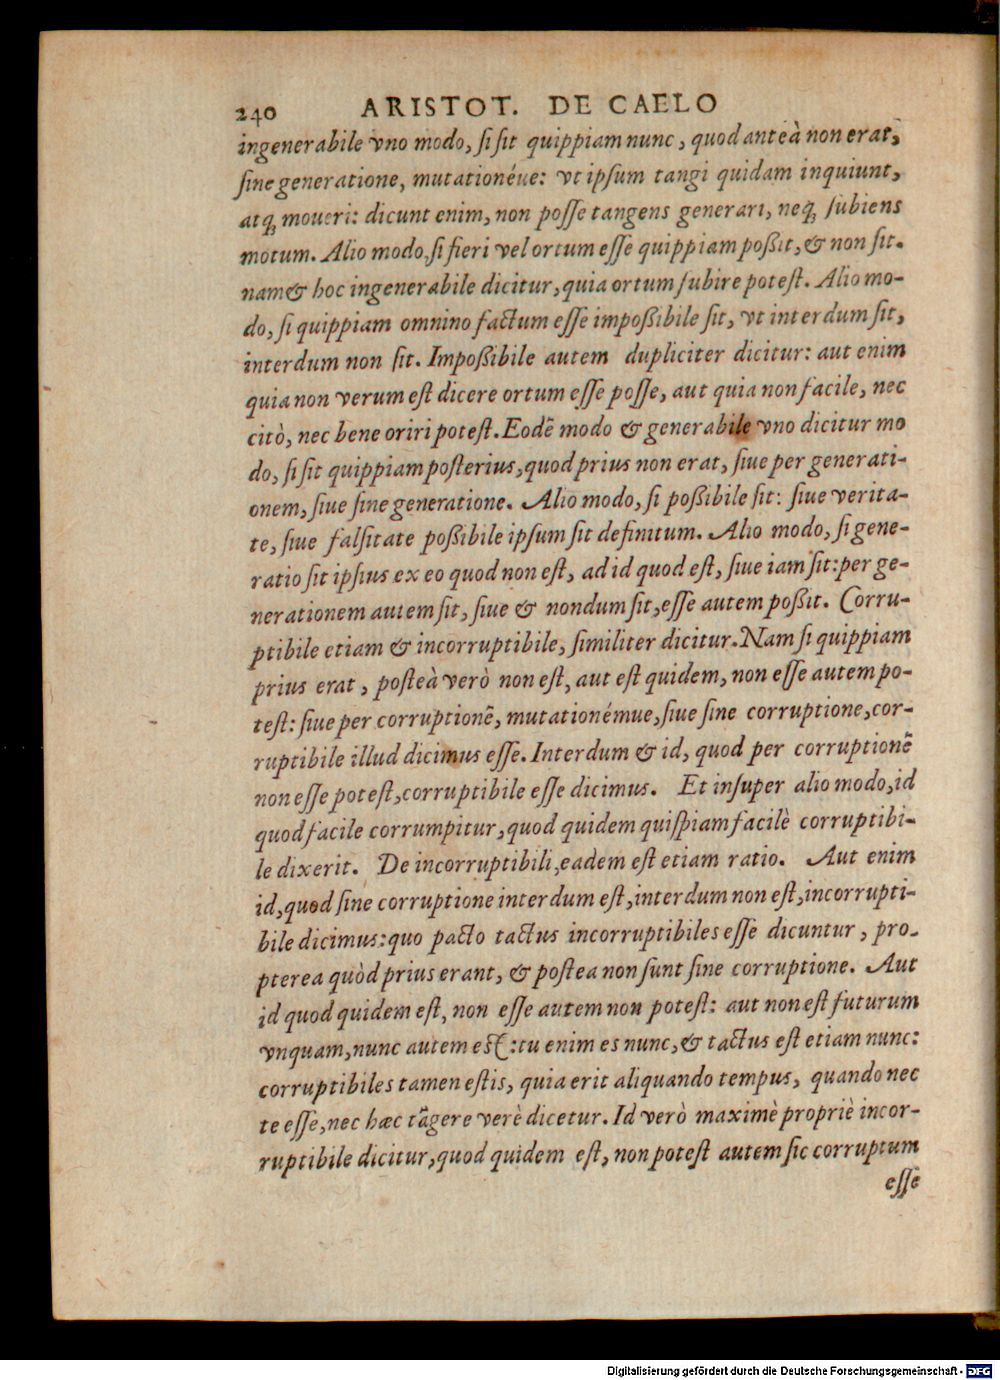 240 ARISTOT. DE CAELO
ingenerabile vno modo, ſi ſit quippiam nunc, quod anteà non erat,
ſine generatione, mutationéue: vt ipſum tangi quidam inquiunt,
atq; moueri: dicunt enim, non poſſe tangens generari, neq; ſubiens
motum. Alio modo, ſi fieri vel ortum eſſe quippiam poßit, & non ſit.
nam & hoc ingenerabile dicitur, quia ortum ſubire poteſt. Alio mo-
do, ſi quippiam omnino factum eſſe impoßibile ſit, vt interdum ſit,
interdum non ſit. Impoßibile autem dupliciter dicitur: aut enim
quia non verum eſt dicere ortum eſſe poſſe, aut quia non facile, nec
citò, nec bene oriri poteſt. Eodē modo & generabile vno dicitur mo
do, ſi ſit quippiam poſterius, quod prius non erat, ſiue per generati-
onem, ſiue ſine generatione. Alio modo, ſi poßibile ſit: ſiue verita-
te, ſiue falſitate poßibile ipſum ſit definitum. Alio modo, ſi gene-
ratio ſit ipſius ex eo quod non eſt, ad id quod eſt, ſiue iam ſit: per ge-
nerationem autem ſit, ſiue & nondum ſit, eſſe autem poßit. Corru-
ptibile etiam & incorruptibile, ſimiliter dicitur. Nam ſi quippiam
prius erat, poſteà verò non eſt, aut eſt quidem, non eſſe autem po-
teſt: ſiue per corruptionē, mutationémue, ſiue ſine corruptione, cor-
ruptibile illud dicimus eſſe. Interdum & id, quod per corruptionē
non eſſe poteſt, corruptibile eſſe dicimus. Et inſuper alio modo, id
quod facile corrumpitur, quod quidem quiſpiam facilè corruptibi-
le dixerit. De incorruptibili, eadem eſt etiam ratio. Aut enim
id, quod ſine corruptione interdum eſt, interdum non eſt, incorrupti-
bile dicimus: quo pacto tactus incorruptibiles eſſe dicuntur, pro-
pterea quòd prius erant, & poſtea non ſunt ſine corruptione. Aut
id quod quidem eſt, non eſſe autem non poteſt: aut non eſt futurum
vnquam, nunc autem eſt: tu enim es nunc, & tactus eſt etiam nunc:
corruptibiles tamen eſtis, quia erit aliquando tempus, quando nec
te eſſe, nec hæc tāgere verè dicetur. Id verò maximè propriè incor-
ruptibile dicitur, quod quidem eſt, non poteſt autem ſic corruptum
eſſe
Digitalisierung gefördert durch die Deutsche Forschungsgemeinschaft - DFG